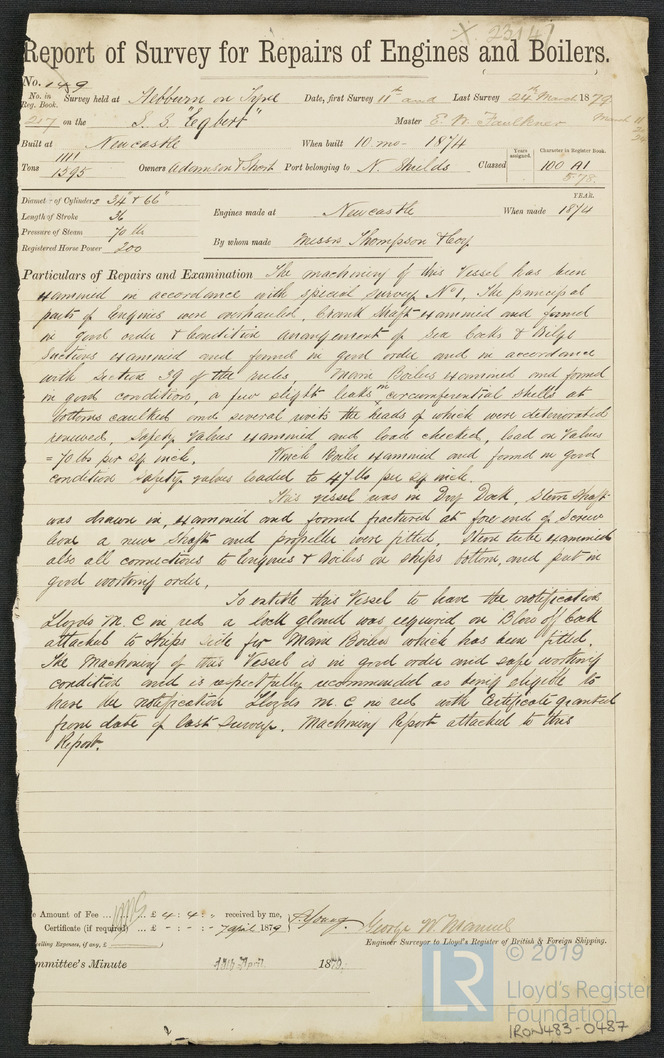 X. 23141
Report of Survey for Repairs of Engines and Boilers.
No. 149
No. in Reg. Book. Survey held at Hebburn on Tyne Date, first Survey 11th and Last Survey 24th March 1879
217 on the S. S. "Egbert" Master E. W. Faulkner
Built at Newcastle When built 10 mo - 1874
Tons 1111 1395 Owners Adamson & Short Port belonging to N. Shields Classed Years assigned. Character in Register Book. 100 A1 5.78
Diamet of Cylinders 34" & 66" YEAR.
Length of Stroke 36 Engines made at Newcastle When made 1874
Pressure of Steam 70 lb
Registered Horse Power 200 By whom made Messrs Thompson & Coy
Particulars of Repairs and Examination The machinery of this Vessel has been
examined in accordance with special survey No 1. The principal
parts of Engines were overhauled, Crank Shaft examined and found
in good order & condition arrangement of Sea Cocks & Bilge
Suctions examined and found in good order and in accordance
with Section 39 of the rules. Main Boilers examined and found
in good condition, a few slight leaks in circumferential shells at
bottoms caulked and several rivets the heads of which were deteriorated
renewed, Safety Valves examined and load checked, load on Valves
= 70 lbs per sq inch. Winch Boiler examined and found in good
condition safety valves loaded to 47 lbs per sq inch.
This vessel was in Dry Dock, Stern Shaft
was drawn in, examined and found fractured at fore end of screw
boss a new Shaft and propeller were fitted, Stern tube examined
also all connections to Engines & Boilers on ships bottom, and put in
good working order.
To entitle this Vessel to have the notification
Lloyds M. C in red a lock gland was required on Blow off Cock
attached to Ships side for Main Boilers which has been fitted.
The Machinery of this Vessel is in good order and safe working
condition and is respectfully recommended as being eligible to
have the notification Lloyds M. C in red with Certificate granted
from date of last survey. Machinery Report attached to this
Report.
e Amount of Fee ... £ 4 : 4 : " received by me, J. Young
Certificate (if required) ... £ - : - : - 7 April 1879 George W. Manuel
velling Expenses, if any, £ Engineer Surveyor to Lloyd's Register of British & Foreign Shipping.
mmittee's Minute 15th April 1879.
LR © 2019
Lloyd's Register
Foundation
IRON483-0487